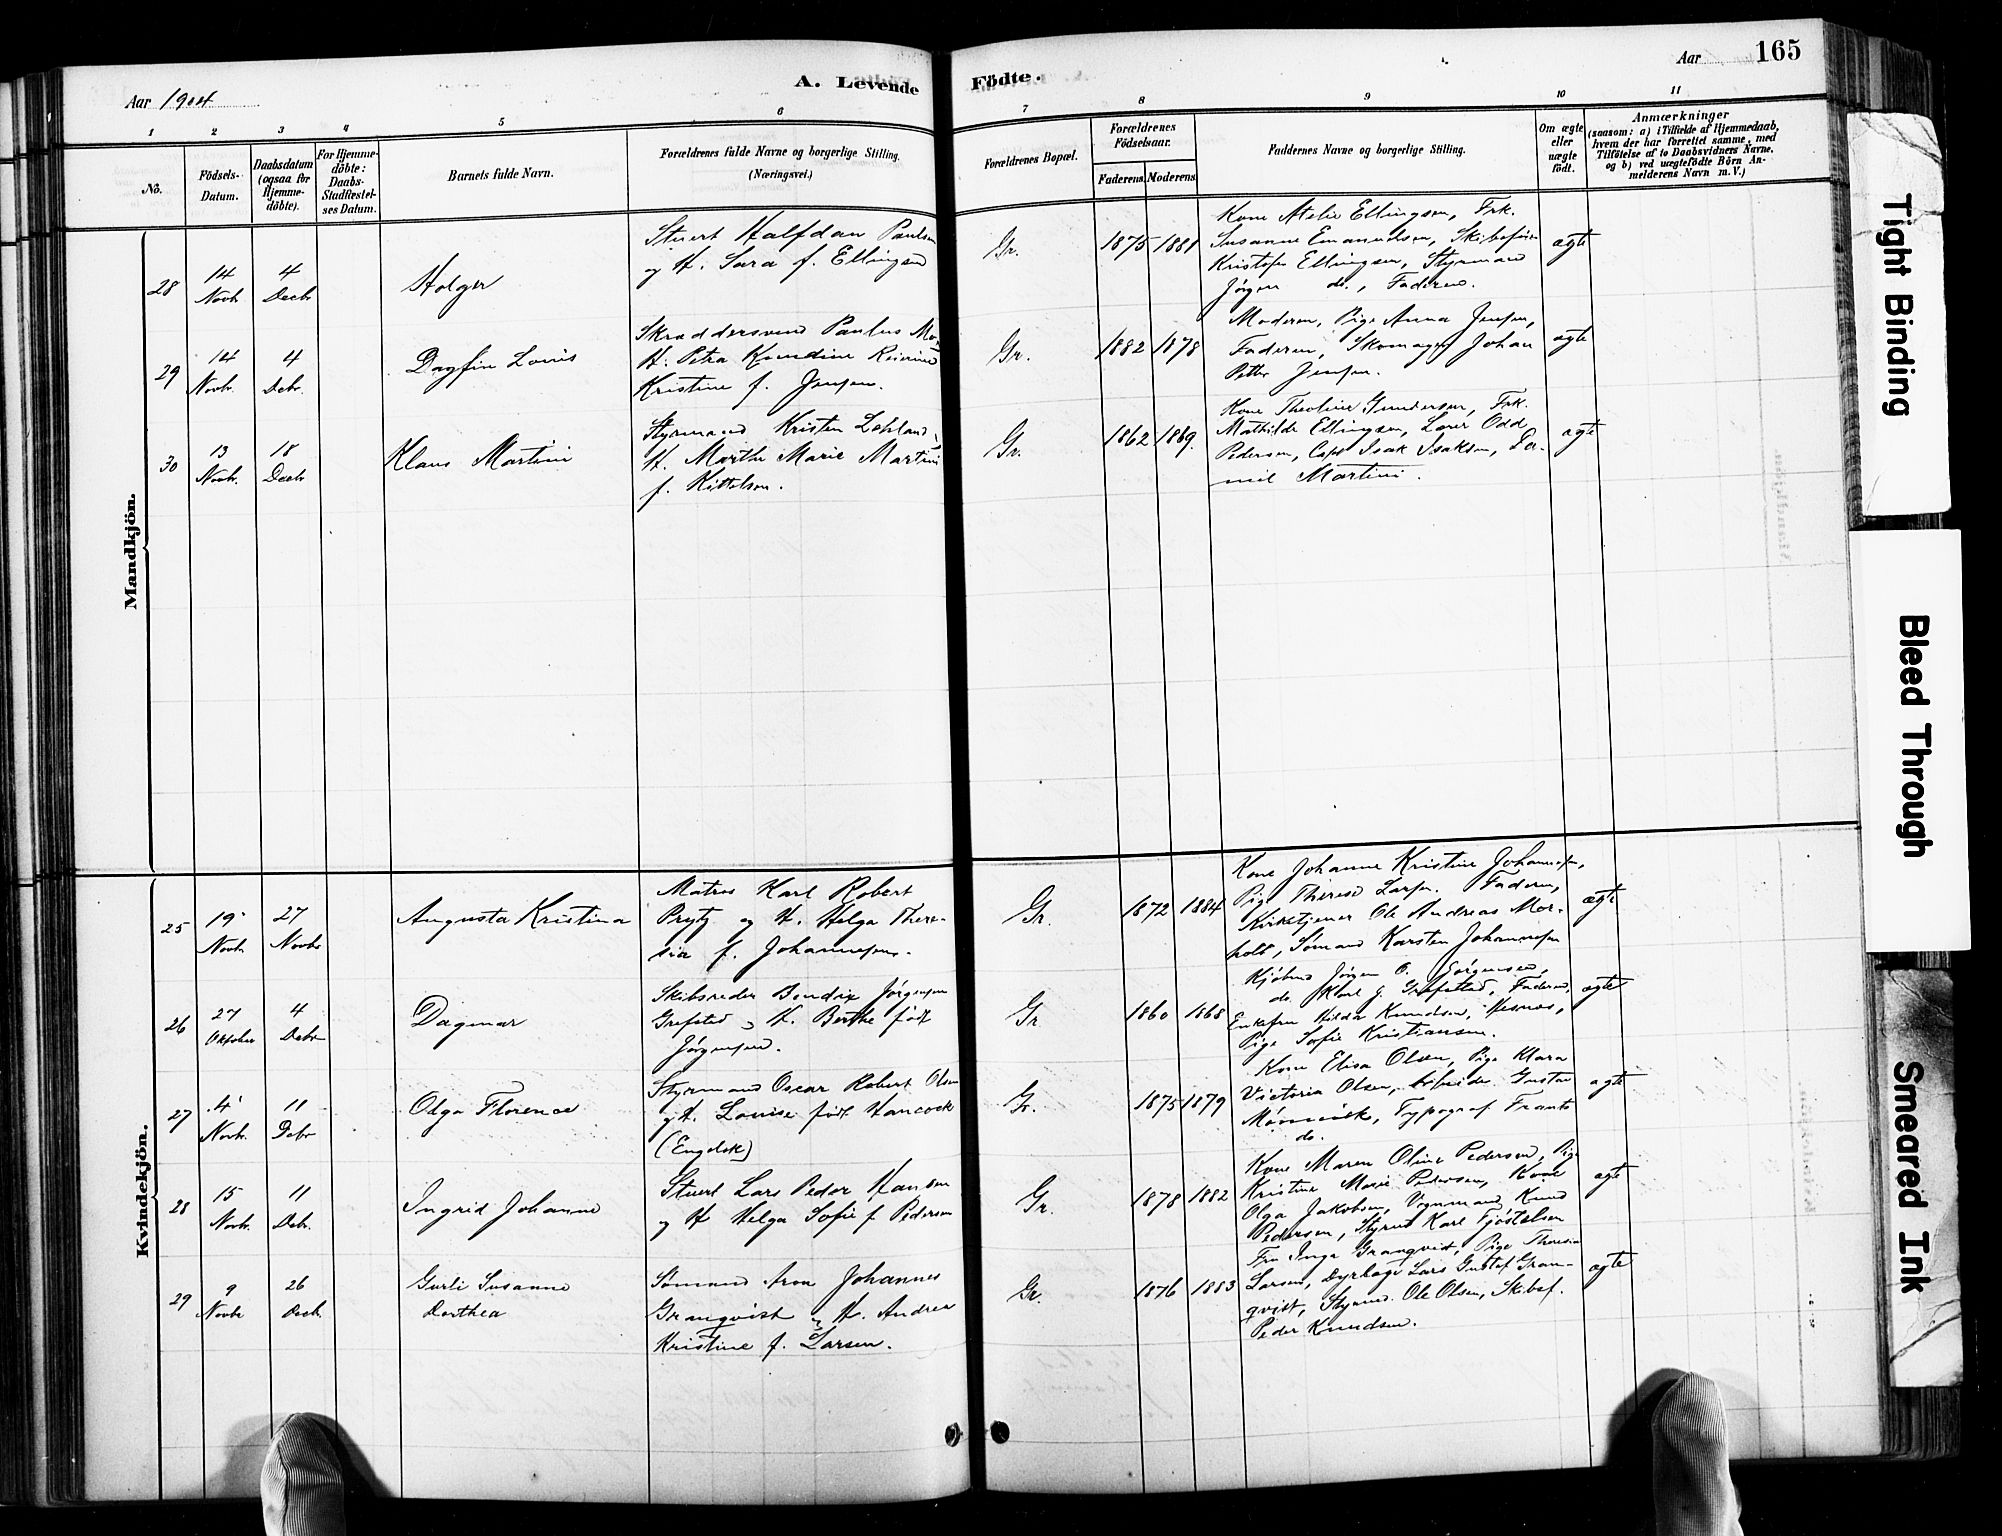 Aar 1904
A. Levende
Födte.
Aar
165
1 2 3 4 5 6 7 8 9 10 11
No.
Födsels-
Datum.
Daabsdatum
(ogsaa for
Hjemme-
döbte).
For Hjemme-
döbte:
Daabs-
Stadfæstel-
ses Datum.
Barnets fulde Navn.
Forældrenes fulde Navne og borgerlige Stilling.
(Næringsvei.)
Forældrenes Bopæl.
Forældrenes
Födselsaar.
Faderens. Moderens.
Faddernes Navne og borgerlige Stilling.
Om ægte
eller
uægte
födt.
Anmærkninger
(saasom: a) i Tilfælde af Hjemmedaab,
hvem der har forrettet samme, med
Tilföielse af to Daabsvidners Navne,
og b) ved uægtefödte Börn An-
melderens Navn m. V.)
Mandkjön.
28
14
Novbr
4
Decbr
Holger
Stuert Halfdan Paulsen
og H. Sara f. Ellingsen
Gr.
1875 1881
Kone Atelie Ellingsen, Frk.
Susanne Emanuelsen, Skibsfører
Kristofer Ellingsen, Styrmand
Jørgen do., Faderen.
ægte
29
14
Novbr.
4
Debr.
Dagfin Louis
Skræddersvend Paulus
H. Petra Kundine
Kristine f. Jensen.
Gr.
1882 1878
Moderen, Pige Anna Jensen,
Faderen, Skomager Johan
Petter Jensen.
ægte
30
13
Novbr.
18
Decbr
Klaus Martini
Styrmand Kristen
H. Marthe Marie Martini
f. Kittelsen.
Gr.
1862 1869.
Kone Theoline Gundersen, Frk.
Mathilde Ellingsen, Lærer Odd
Pedersen, Capt Isak Isaksen, Da-
niel Martini.
ægte
Kvindekjön.
25
19
Novbr.
27
Novbr
Augusta Kristina
Matros Karl Robert
Prytz og H. Helga There-
sia f. Johannesen.
Gr.
1872 1884
Kone Johanne Kristine Johannesen,
Pige Therese Larsen. Faderen,
Kirketjener Ole Andreas Mor-
holt, Sømand Karsten Johannesen
ægte
26
27
Oktober
4
Debr
Dagmar
Skibsreder Bendix Jørgensen
Grefsted og H. Berthe født
Jørgensen.
Gr
1860 1868
Kjøbmd Jørgen O. Jørgensen,
do. Karl J. Grefsted, Faderen,
Enkefru Hilda Knudsen, Hesnæs,
Pige Sofie Kristiansen.
ægte
27
4
Novbr.
11
Debr
Olga Florence
Styrmand Oscar Robert Olsen
og H. Louise født Hancock
(Engelsk)
Gr.
1875 1879
Kone Elisa Olsen, Pige Klara
Victoria Olsen, Arbeider Gustav
Typograf Frants
do.
ægte
28
15
Novbr.
11
Debr.
Ingrid Johanne
Stuert Lars Peder Hansen
og H Helga Sofie f Pedersen
Gr.
1878 1882
Kone Maren Oline Pedersen, Pige
Kristine Marie Pedersen, Kone
Olga Jakobsen, Vognmand Knud
Pedersen, Styrmd Karl Fjøstelsen
ægte
29
9
Novbr
26
Decb.
Gurli Susanne
Dorthea
Sømand Aron Johannes
Granqvist og H. Andrea
Kristine f. Larsen.
Gr.
1876 1883
Fru Inga Granqvist, Pige Theresia
Larsen, Dyrlæge Lars Gustaf Gran-
qvist, Styrmd. Ole Olsen, Skibsf.
Peder Knudsen.
ægte
Tight Binding
Bleed Through
Smeared Ink